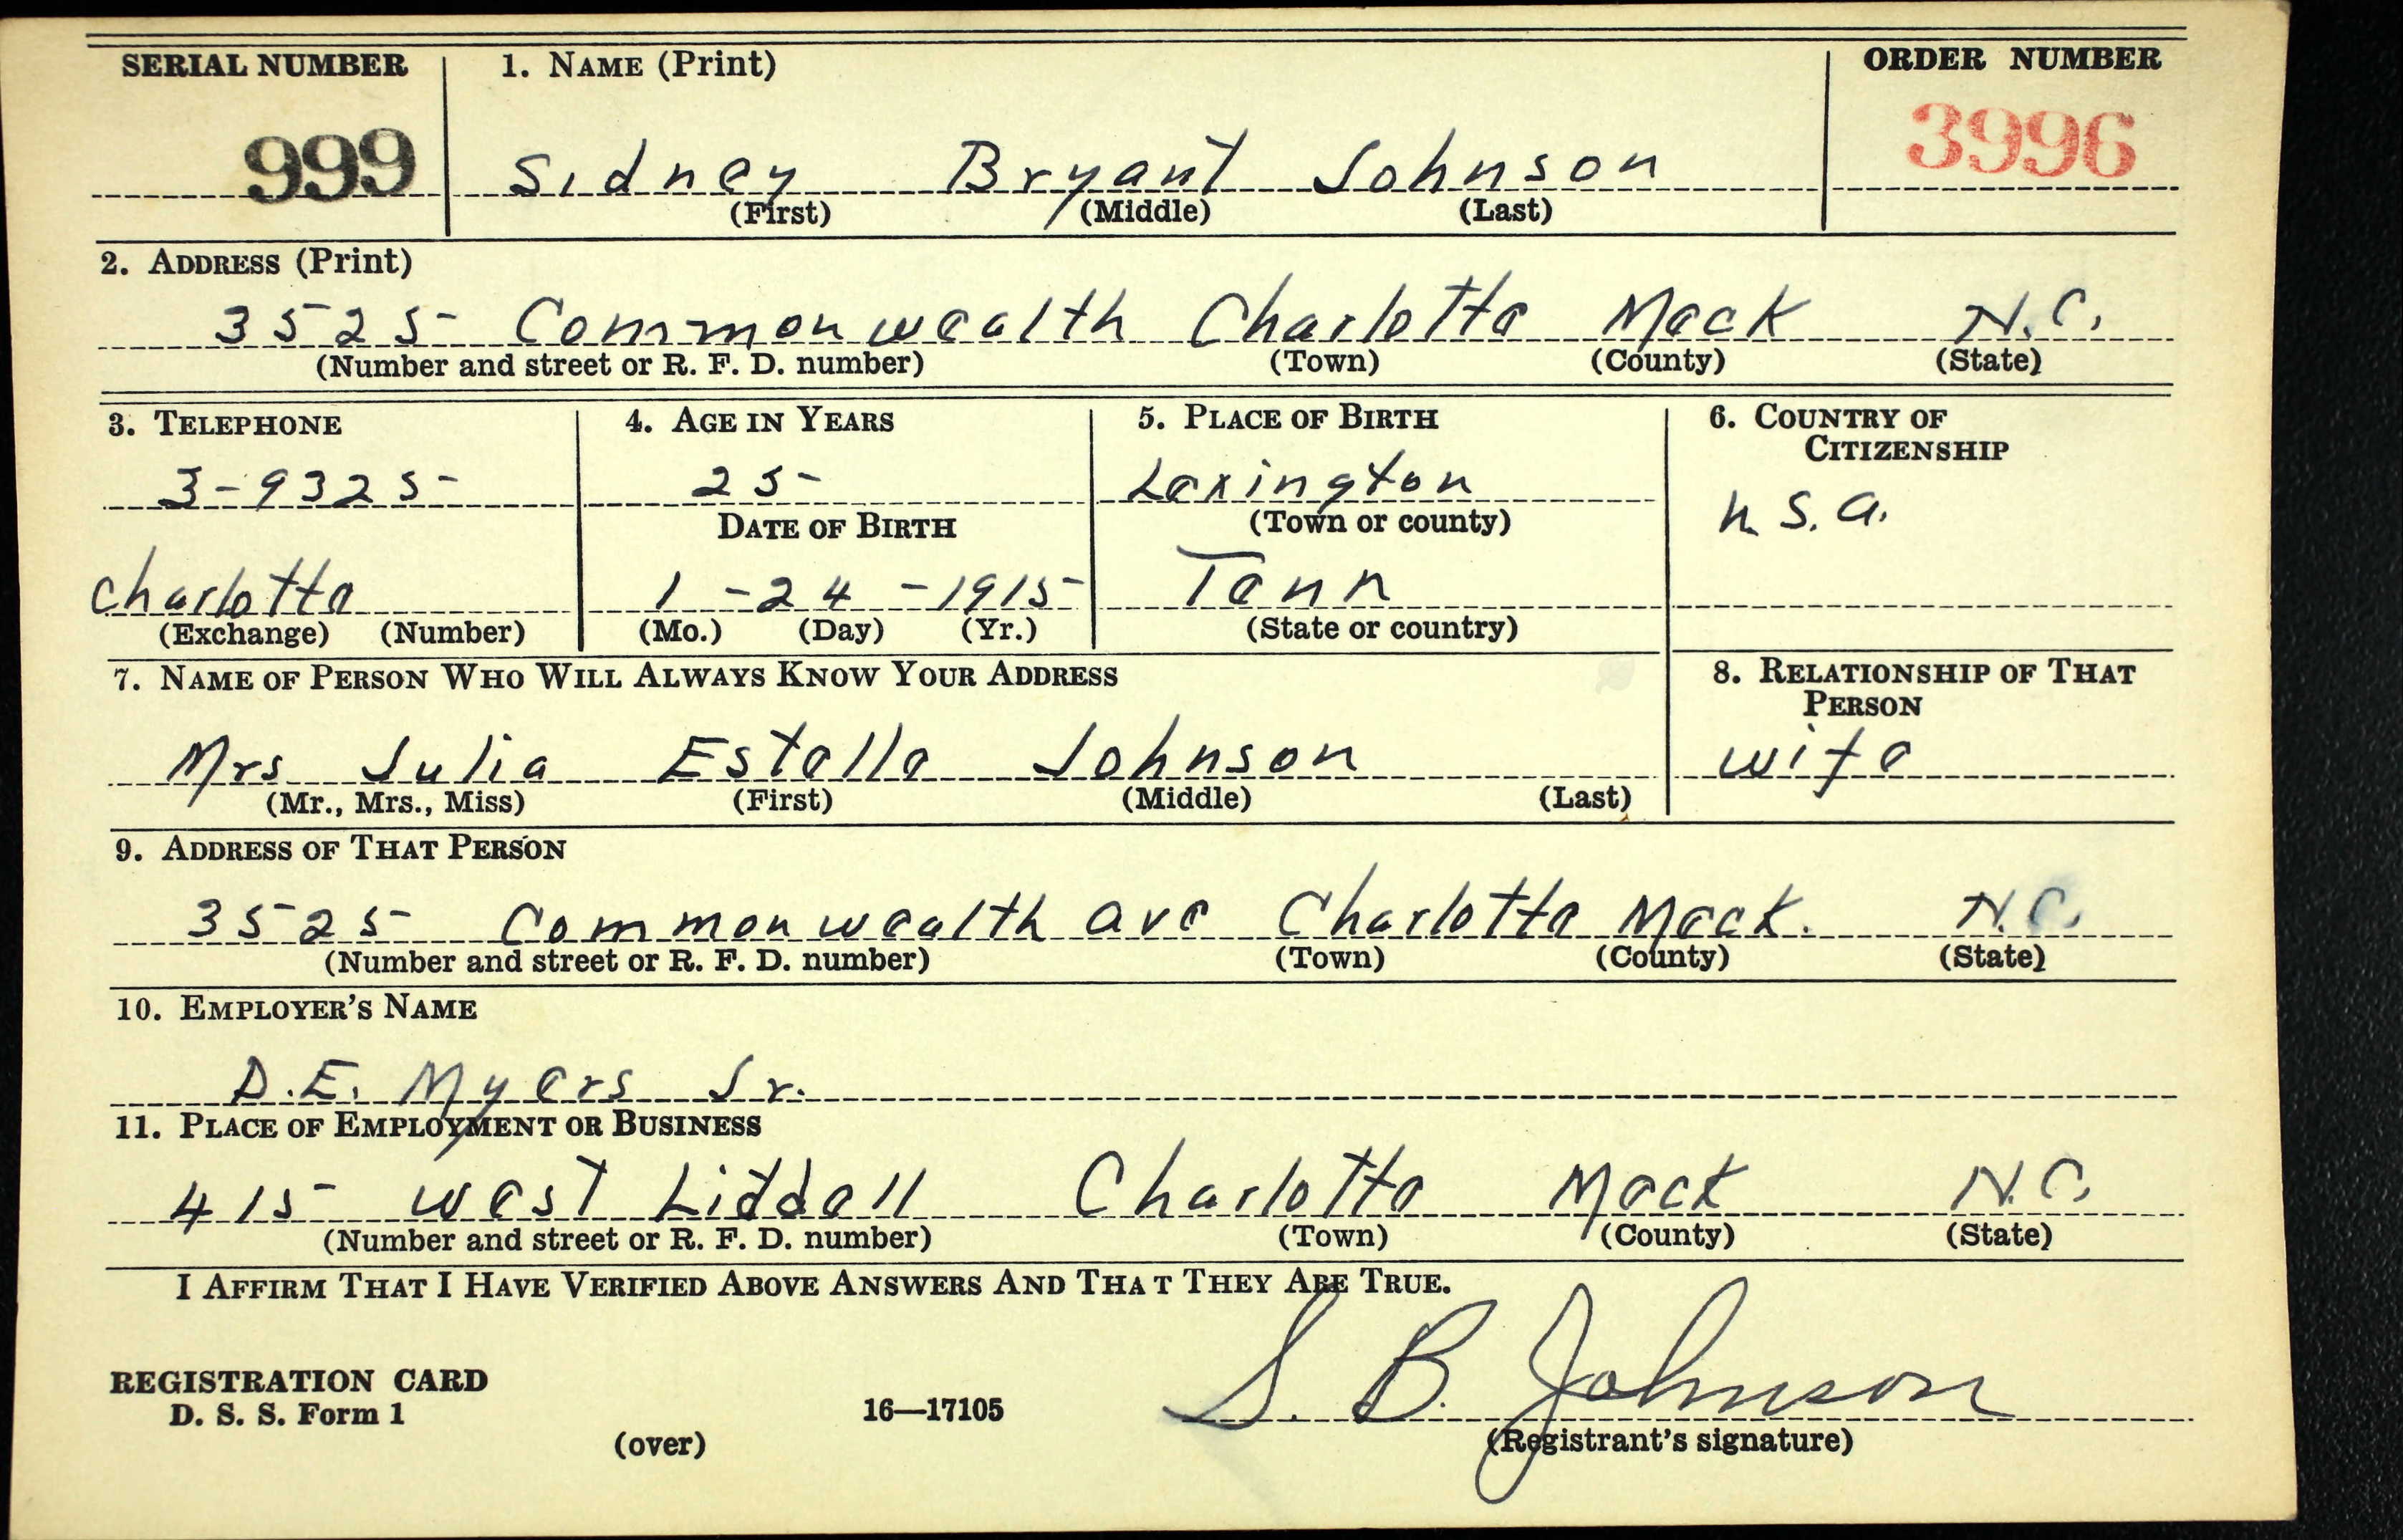 SERIAL NUMBER 1. NAME (Print) ORDER NUMBER
999 Sidney Bryant Johnson 3996
(First) (Middle) (Last)
2. ADDRESS (Print)
3525 Commonwealth Charlotte Meck N.C.
(Number and street or R. F. D. number) (Town) (County) (State)
3. TELEPHONE 4. AGE IN YEARS 5. PLACE OF BIRTH 6. COUNTRY OF CITIZENSHIP
3-9325 25 Lexington U S. a.
DATE OF BIRTH (Town or county)
Charlotte 1-24-1915 Tenn
(Exchange) (Number) (Mo.) (Day) (Yr.) (State or country)
7. NAME OF PERSON WHO WILL ALWAYS KNOW YOUR ADDRESS 8. RELATIONSHIP OF THAT PERSON
Mrs Julia Estelle Johnson wife
(Mr., Mrs., Miss) (First) (Middle) (Last)
9. ADDRESS OF THAT PERSON
3525 Commonwealth ave Charlotte Meck. N.C.
(Number and street or R. F. D. number) (Town) (County) (State)
10. EMPLOYER'S NAME
D.E. Myers Jr.
11. PLACE OF EMPLOYMENT OR BUSINESS
415 West Liddell Charlotte Meck N.C.
(Number and street or R. F. D. number) (Town) (County) (State)
I AFFIRM THAT I HAVE VERIFIED ABOVE ANSWERS AND THAT THEY ARE TRUE.
S. B. Johnson
REGISTRATION CARD
D. S. S. Form 1 16—17105
(over) (Registrant's signature)